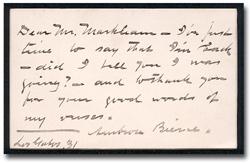 Dear Mr. Markham – I've just
time to say that I'm back
– did I tell you I was
going? – and to thank you
for your good words of
my verses.
Ambrose Bierce.
Los Gatos, 31